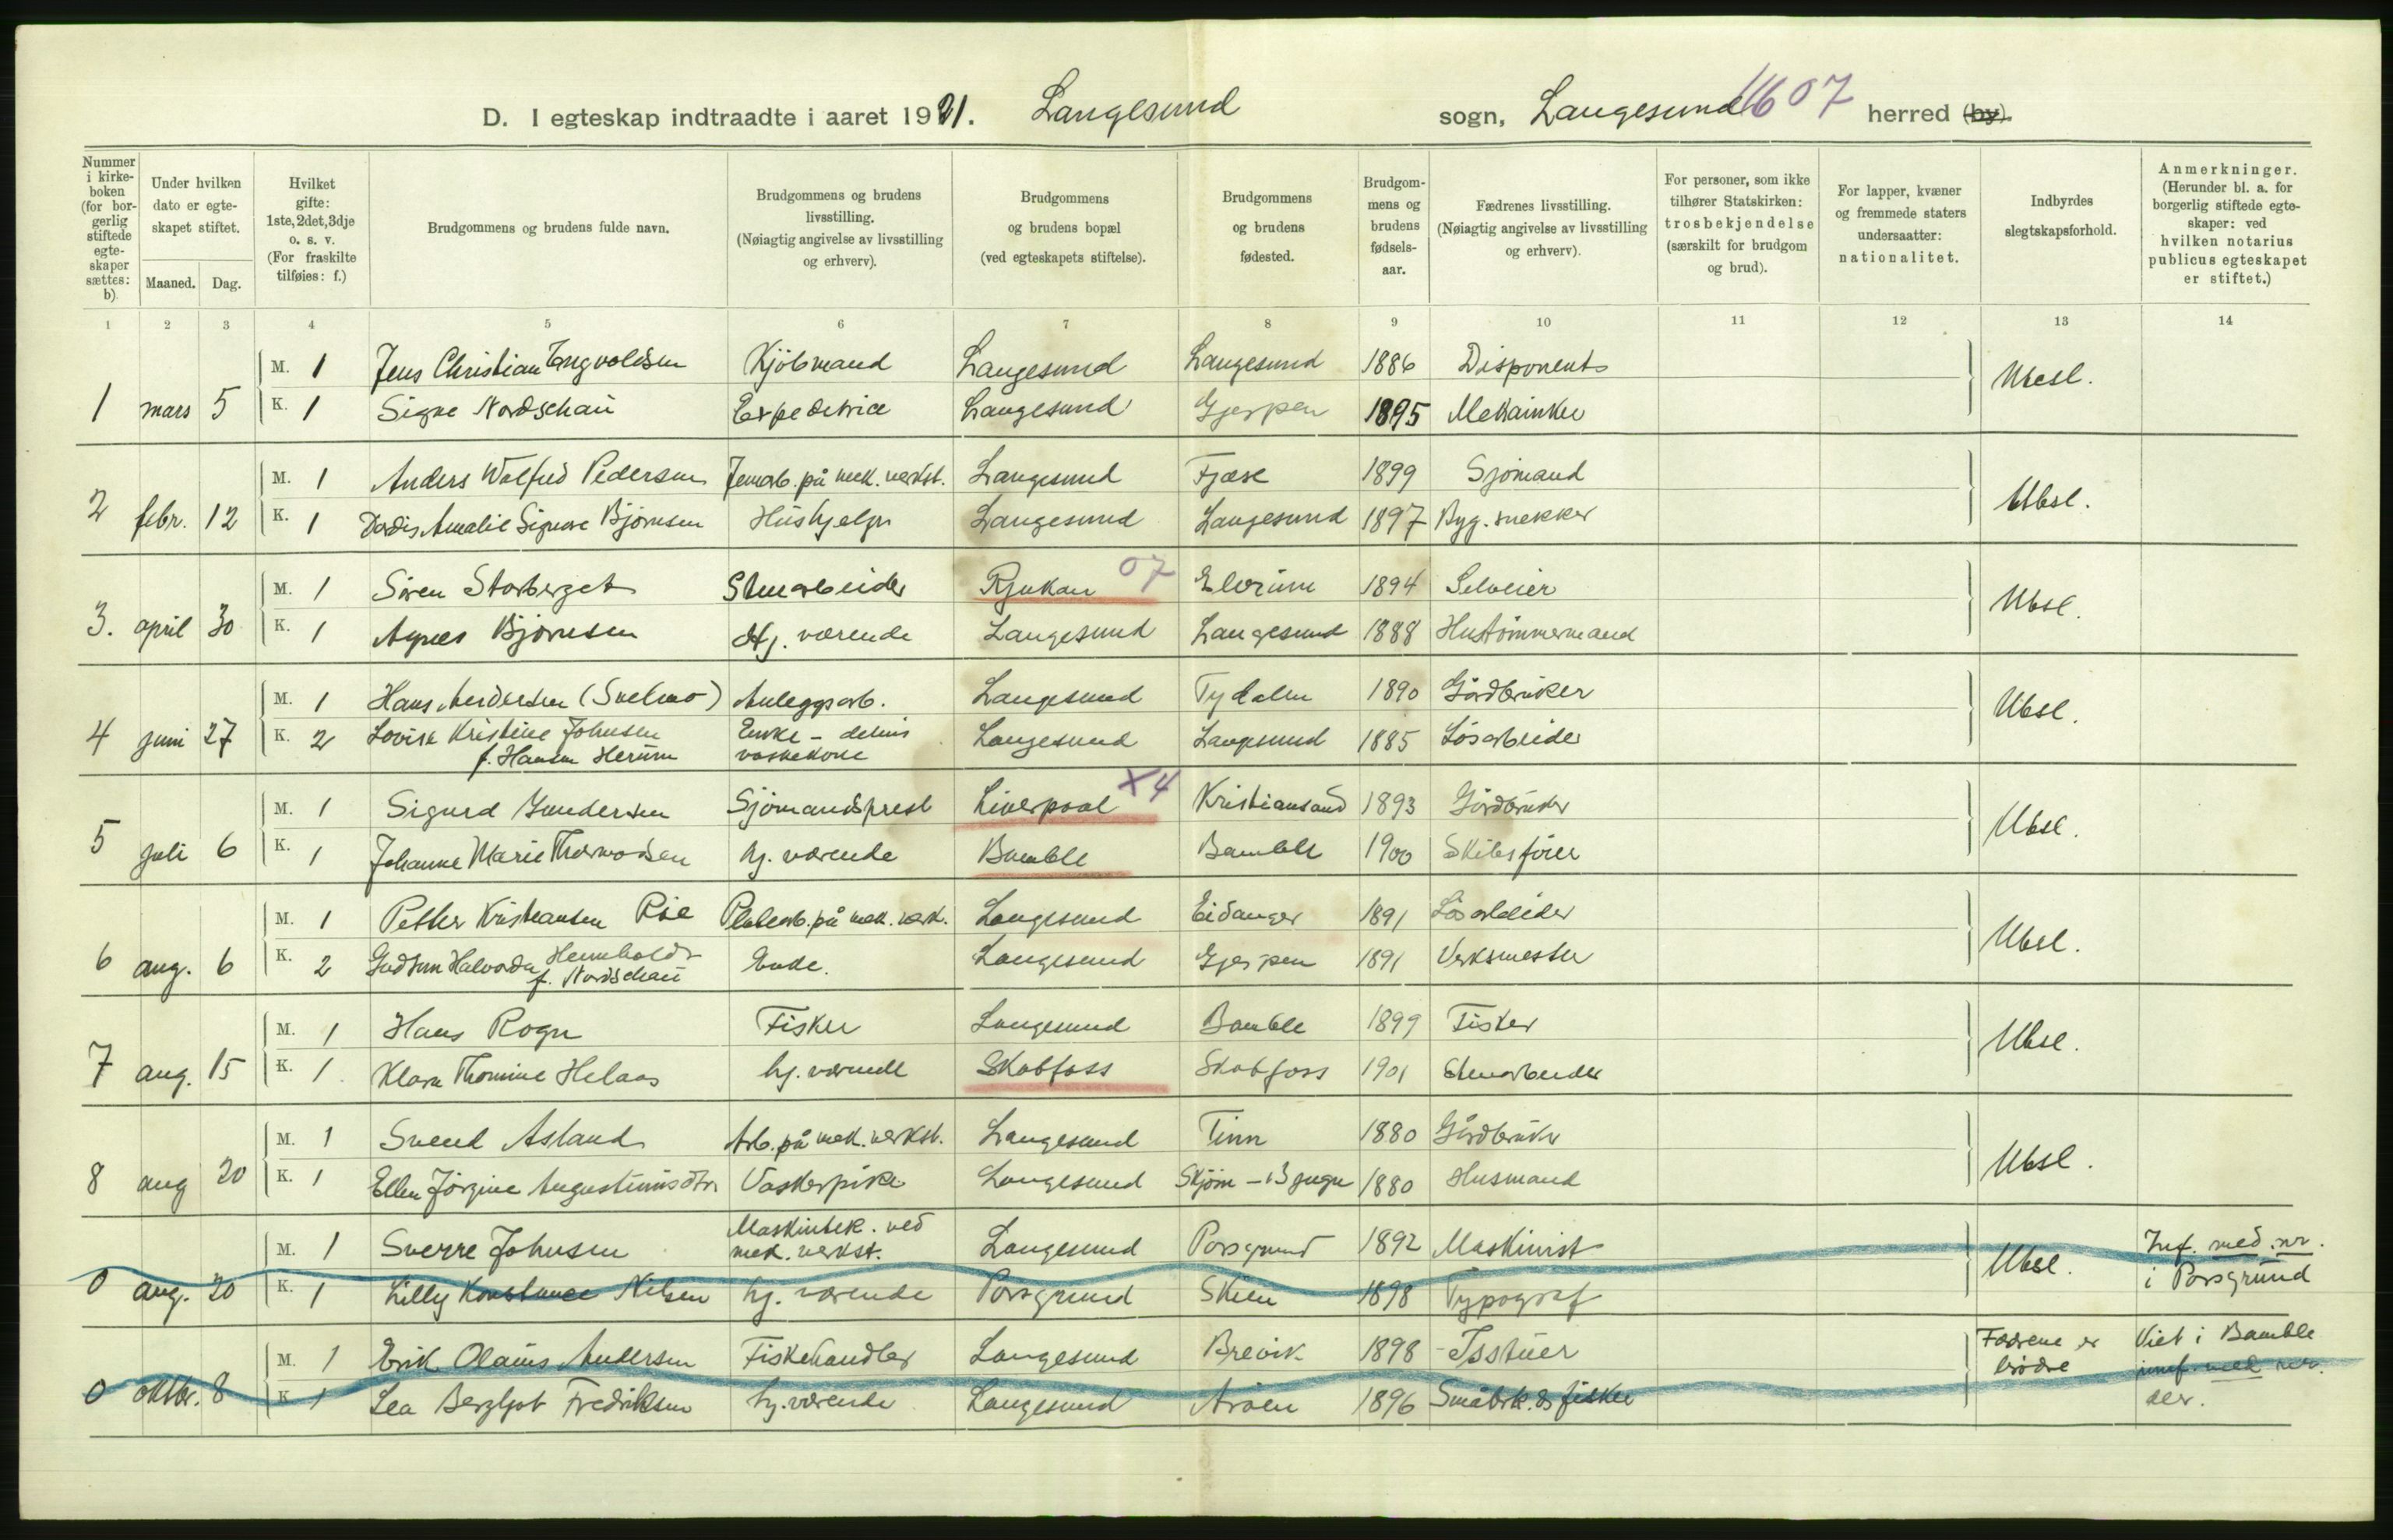 D. I egteskap indtraadte i aaret 1921. Langesund sogn, Langesund 1607 herred (by).
Nummer i kirke-boken (for bor-gerlig stiftede egte-skaper sættes: b)
Under hvilken dato er egte-skapet stiftet.
Maaned. Dag.
Hvilket gifte: 1ste, 2det, 3dje o. s. v. (For fraskilte tilføies: f.)
Brudgommens og brudens fulde navn.
Brudgommens og brudens livsstilling. (Nøiagtig angivelse av livsstilling og erhverv).
Brudgommens og brudens bopæl (ved egteskapets stiftelse).
Brudgommens og brudens fødested.
Brudgom-mens og brudens fødsels-aar.
Fædrenes livsstilling. (Nøiagtig angivelse av livsstilling og erhverv).
For personer, som ikke tilhører Statskirken: trosbekjendelse (særskilt for brudgom og brud).
For lapper, kvæner og fremmede staters undersaatter: nationalitet.
Indbyrdes slegtskapsforhold.
Anmerkninger. (Herunder bl. a. for borgerlig stiftede egte-skaper: ved hvilken notarius publicus egteskapet er stiftet.)
1 2 3 4 5 6 7 8 9 10 11 12 13 14
M. 1 Jens Christian Engvoldsen Kjöbmand Langesund Langesund 1886 Disponent
1 mars 5 K. 1 Signe Nordschau Expeditrice Langesund Gjerpen 1895 Mekaniker Ubesl.
M. 1 Anders Wolfred Pedersen Jernarb. på mek. verkst. Langesund Fjære 1899 Sjömand
2 febr. 12 K. 1 Dordis Amalie Signore Björnsen Hushjelp Langesund Langesund 1897 Byg. snekker Ubsl.
M. 1 Sören Storberget Stenarbeider Rjukan 07 Elverum 1894 Selveier
3. april 30 K. 1 Agnes Björnsen Hj. værende Langesund Langesund 1888 Hustömmermand Ubsl.
M. 1 Hans Andersen (Svelmo) Anleggsarb. Langesund Tydalen 1890 Gårdbruker
4 juni 27 K. 2 Lovise Kristine Johnsen f. Hansen Herum Enke - delvis vaskekone Langesund Langesund 1885 Lösarbeider Ubsl.
M. 1 Sigurd Gundersen Sjömandsprest Liverpool X4 Kristiansand 1893 Gårdbruker
5 juli 6 K. 1 Johanne Marie Thorvodsen hj. værende Bamble Bamble 1900 Skibsförer Ubsl.
M. 1 Petter Kristiansen Rie Platearb. på mek. verk. Langesund Eidanger 1891 Lösarbeider
6 aug. 6 K. 2 Gudrun Halvorda Hernholdt f. Nordschau Enke. Langesund Gjerpen 1891 Verksmester Ubsl.
M. 1 Hans Rogn Fisker Langesund Bamble 1899 Fisker
7 aug. 15 K. 1 Klara Thomine Helaas hj. værende Skotfoss Skotfoss 1901 Stenarbeider Ubsl.
M. 1 Svend Asland Arb. på mek. verkst. Langesund Tinn 1880 Gårdbruker
8 aug 20 K. 1 Ellen Jörgine Augustinusdtr Vaskerpike Langesund Skjöm - Bjugn 1880 Husmand Ubsl.
M. 1 Sverre Johnsen Maskintek. ved mek. verkst. Langesund Porsgrund 1892 Maskinist
0 aug. 20 K. 1 Lilly Konstance Nilsen hj. værende Porsgrund Skien 1898 Typograf Ubsl. Inf. med nr. i Porsgrund
M. 1 Erik Olaus Andersen Fiskehandler Langesund Brevik 1898 Isstuer
0 oktbr. 8 K 1 Lea Bergljot Fredriksen hj. værende Langesund Aröen 1896 Småbrk. & fisker Fædrene er brödre Viet i Bamble innf. med nr. der.